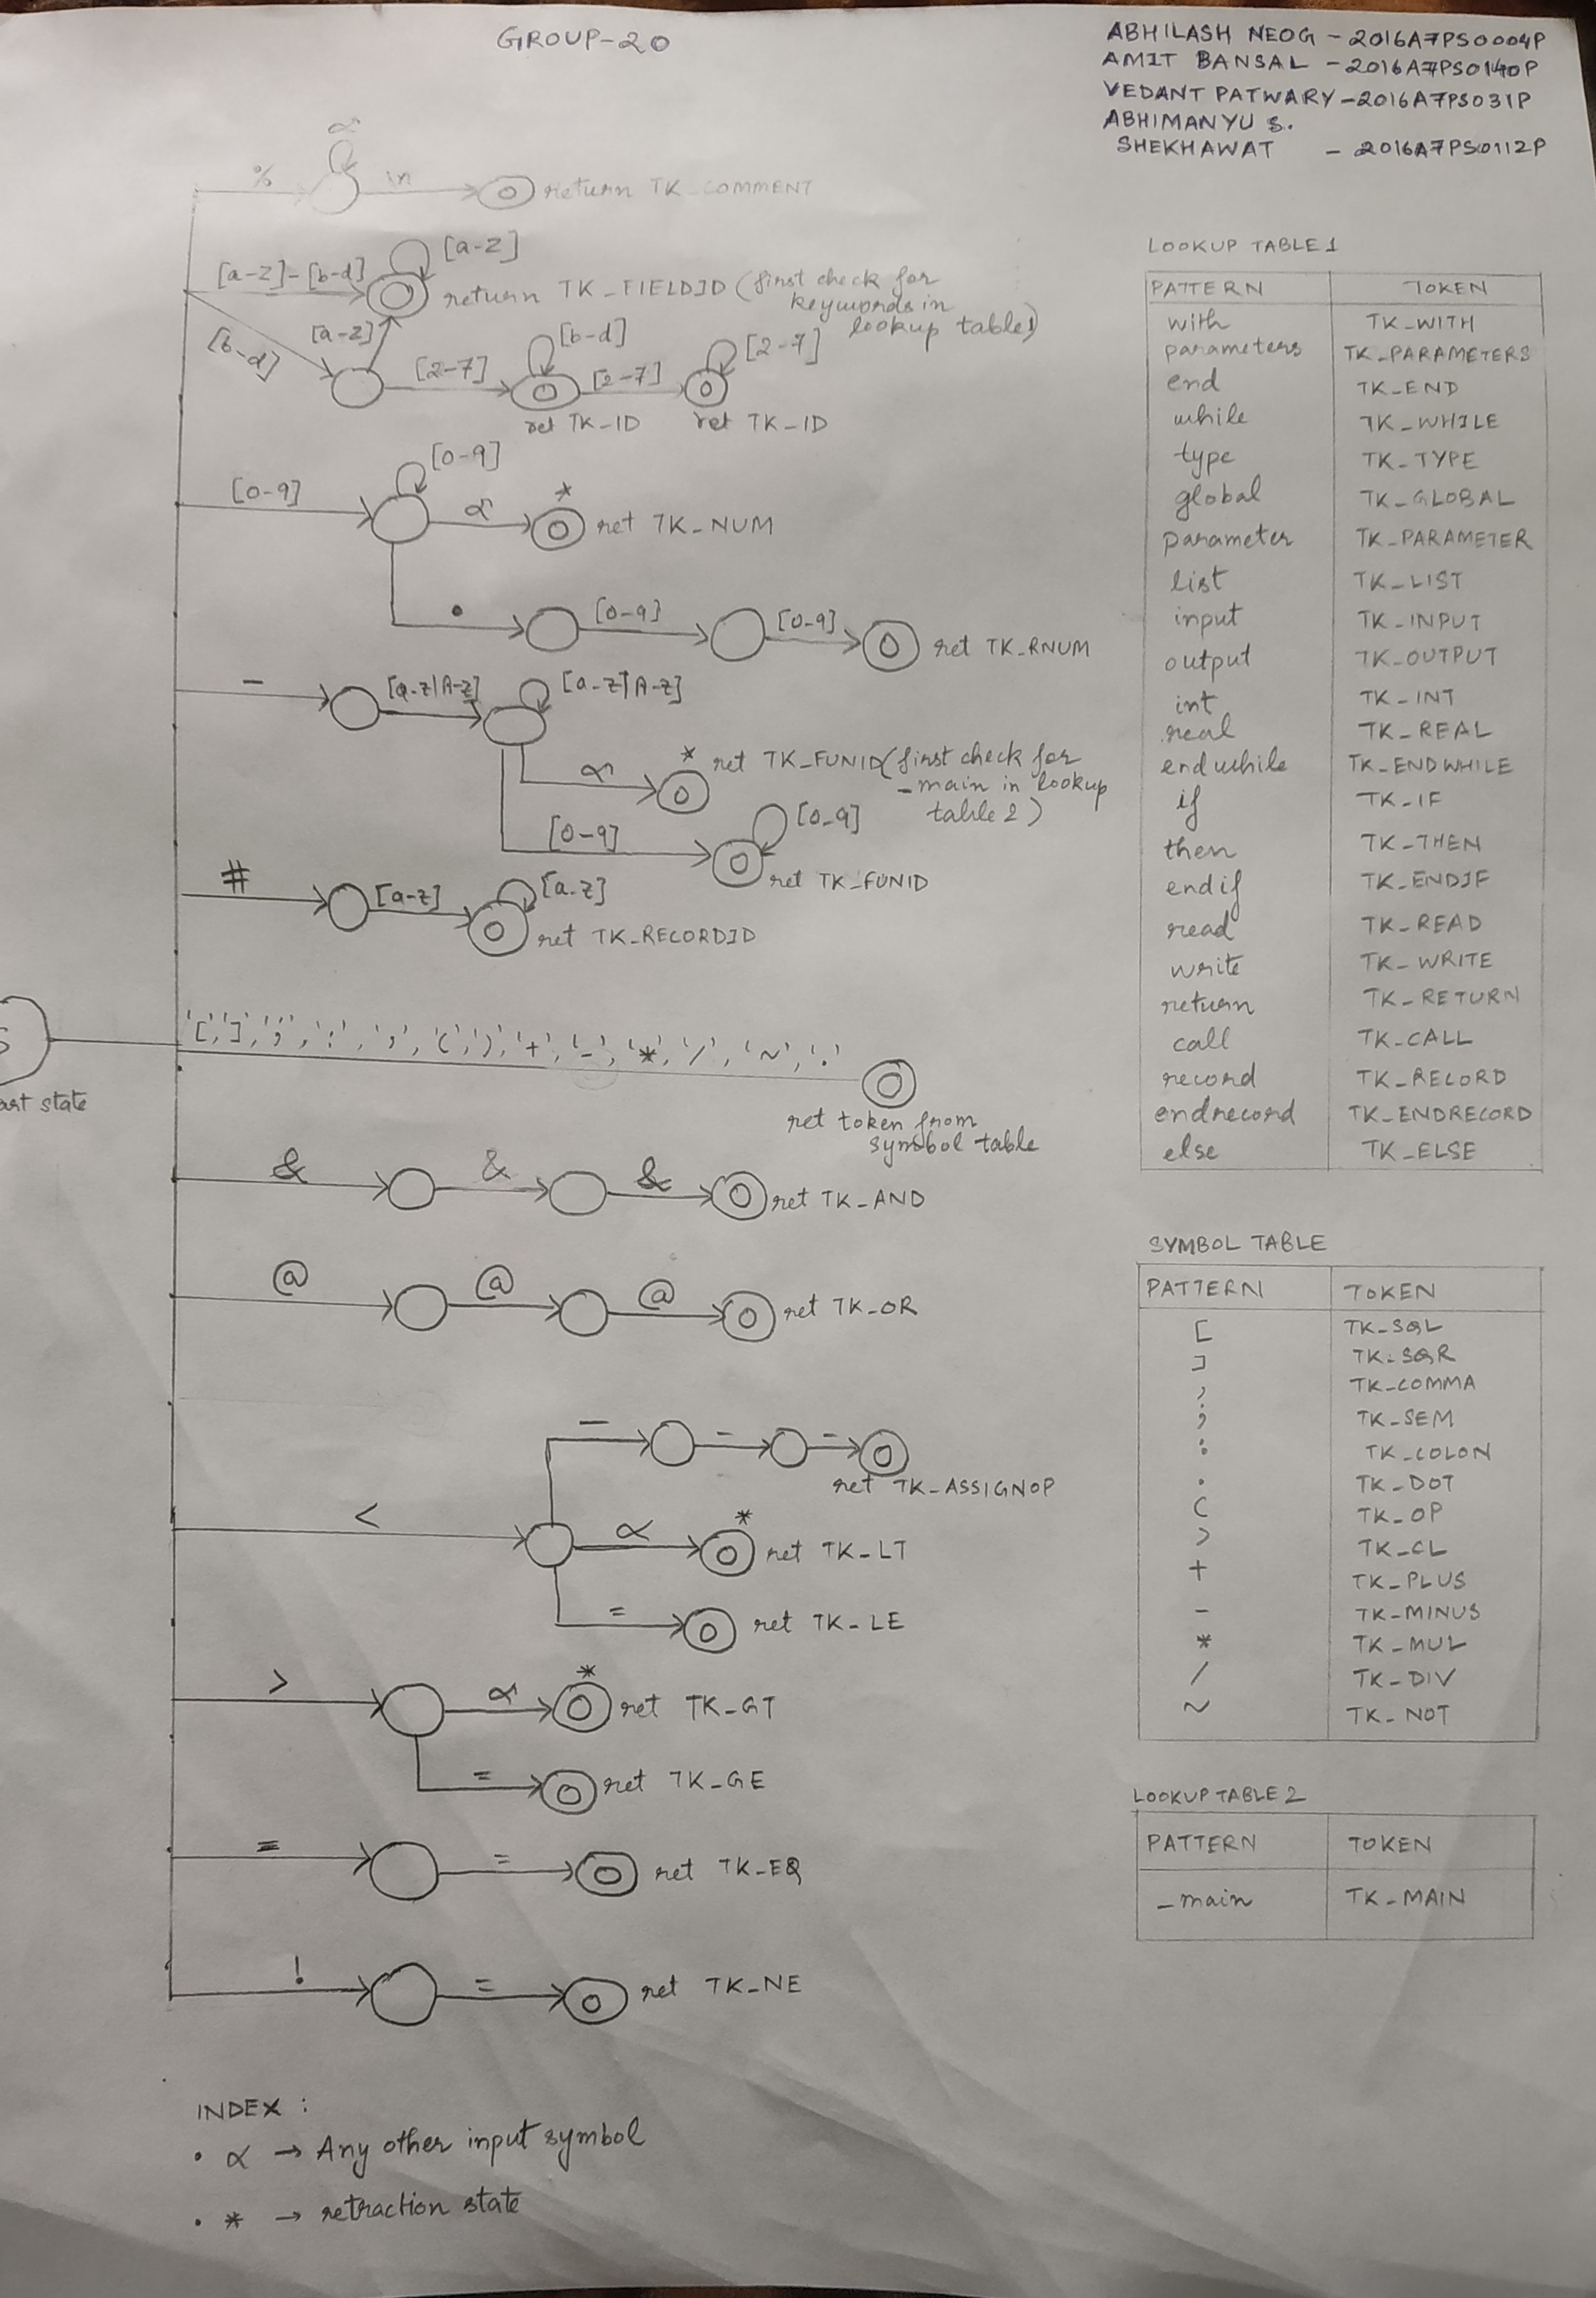 GROUP-20
ABHILASH NEOG - 2016A7PS0004P
AMIT BANSAL - 2016A7PS0140P
VEDANT PATWARY - 2016A7PS031P
ABHIMANYU S.
SHEKHAWAT - 2016A7PS0112P
% \n return TK_COMMENT
[a-z]
[a-z]-[b-d] return TK_FIELDID (first check for
keywords in
lookup table1)
[b-d] [a-z] [2-7] [b-d] [2-7] [2-7]
ret TK_ID ret TK_ID
[0-9]
[0-9] α * ret TK_NUM
. [0-9] [0-9] ret TK_RNUM
- [a-z|A-Z] [a-z|A-Z]
α * ret TK_FUNID (first check for
_main in lookup
table 2)
[0-9] [0-9]
ret TK_FUNID
# [a-z] [a-z]
ret TK_RECORDID
'[', ']', ';', ':', ',', '(', ')', '+', '-', '*', '/', '~', '.'
art state
ret token from
symbol table
& & & ret TK_AND
@ @ @ ret TK_OR
- - -
ret TK_ASSIGNOP
< α * ret TK_LT
= ret TK_LE
> α * ret TK_GT
= ret TK_GE
= = ret TK_EQ
! = ret TK_NE
INDEX :
• α → Any other input symbol
• * → retraction state
LOOKUP TABLE 1
PATTERN TOKEN
with TK_WITH
parameters TK_PARAMETERS
end TK_END
while TK_WHILE
type TK_TYPE
global TK_GLOBAL
parameter TK_PARAMETER
list TK_LIST
input TK_INPUT
output TK_OUTPUT
int TK_INT
real TK_REAL
endwhile TK_ENDWHILE
if TK_IF
then TK_THEN
endif TK_ENDIF
read TK_READ
write TK_WRITE
return TK_RETURN
call TK_CALL
record TK_RECORD
endrecord TK_ENDRECORD
else TK_ELSE
SYMBOL TABLE
PATTERN TOKEN
[ TK_SQL
] TK_SQR
, TK_COMMA
; TK_SEM
: TK_COLON
. TK_DOT
( TK_OP
) TK_CL
+ TK_PLUS
- TK_MINUS
* TK_MUL
/ TK_DIV
~ TK_NOT
LOOKUP TABLE 2
PATTERN TOKEN
_main TK_MAIN